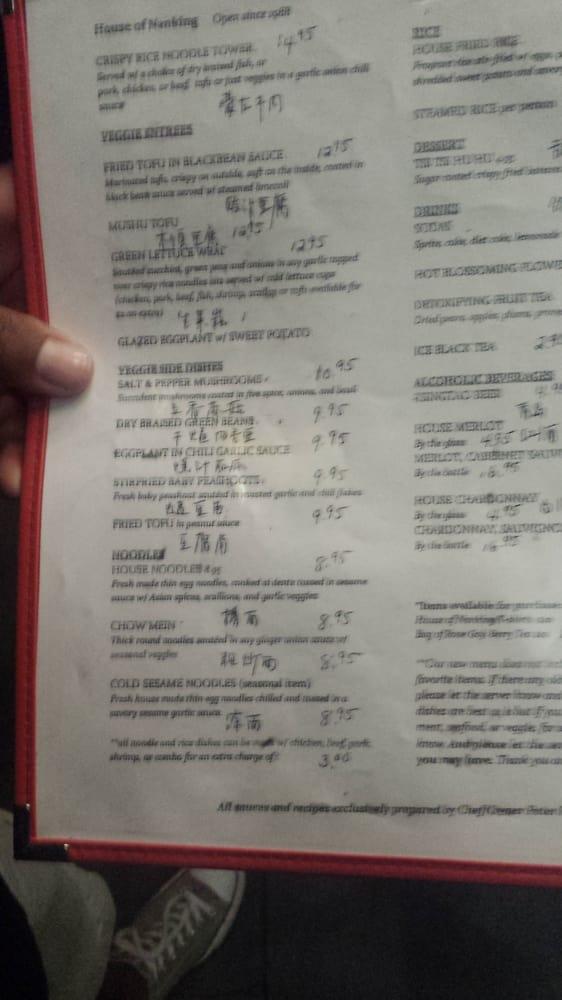 House of Nanking Open since 1988
CRISPY RICE NOODLE TOWER 14.95
Served w/ a choice of dry braised fish, or
pork, chicken, or beef, tofu or just veggies in a garlic onion chili
sauce
VEGGIE ENTREES
FRIED TOFU IN BLACKBEAN SAUCE 12.95
Marinated tofu, crispy on outside, soft on the inside, coated in
black bean sauce served w/ steamed broccoli
豉汁豆腐
MUSHU TOFU
木须豆腐 12.95
GREEN LETTUCE WRAP 12.95
Sautéed zucchini, green peas and onions in soy garlic topped
over crispy rice noodles into served w/ cold lettuce cups
(chicken, pork, beef, fish, shrimp, scallop or tofu available for
an extra)
生菜
GLAZED EGGPLANT w/ SWEET POTATO
VEGGIE SIDE DISHES 10.95
SALT & PEPPER MUSHROOMS
Succulent mushrooms coated in five spice, onions, and basil
五香蘑菇
DRY BRAISED GREEN BEANS 9.95
EGGPLANT IN CHILI GARLIC SAUCE 9.95
STIRFRIED BABY PEASHOOTS 9.95
Fresh baby peashoot sautéed in roasted garlic and chili flakes
豆苗
FRIED TOFU in peanut sauce 9.95
豆腐
NOODLES
HOUSE NOODLES 8.95 8.95
Fresh made thin egg noodles, cooked al dente tossed in sesame
sauce w/ Asian spices, scallions, and garlic veggies
CHOW MEIN 8.95
Thick round noodles sautéed in soy ginger onion sauce w/
seasonal veggies
粗炒面 8.95
COLD SESAME NOODLES (seasonal item)
Fresh house made thin egg noodles chilled and tossed in a
savory sesame garlic sauce
麻面 8.95
**all noodle and rice dishes can be made w/ chicken, beef, pork,
shrimp, or combo for an extra charge of: 3.00
RICE
HOUSE FRIED RICE
shredded sweet potato and
STEAMED RICE per person
DESSERT
Sugar coated crispy fried
DRINKS
SODAS
Sprite, coke, diet coke, lemonade
HOT BLOSSOMING FLOWE
DETOXIFYING FRUIT TEA
Dried pears, apples, plums,
ICE BLACK TEA 2.95
ALCOHOLIC BEVERAGES
TSINGTAO BEER
HOUSE MERLOT
By the glass 4.95
MERLOT, CABERNET SAUVI
By the bottle
HOUSE CHARDONNAY
By the glass 4.95
CHARDONNAY, SAUVIGNO
By the bottle
*Items available for purchase
House of Nanking T-shirts
Bag of Rose Goji Berry Tea
**Our new menu does not
favorite items. If there any
please let the server know and
dishes are best as is but if you
ment, seafood, or veggies,
know. And please let the
you may have. Thank you
All sauces and recipes exclusively prepared by Chef/Owner Peter